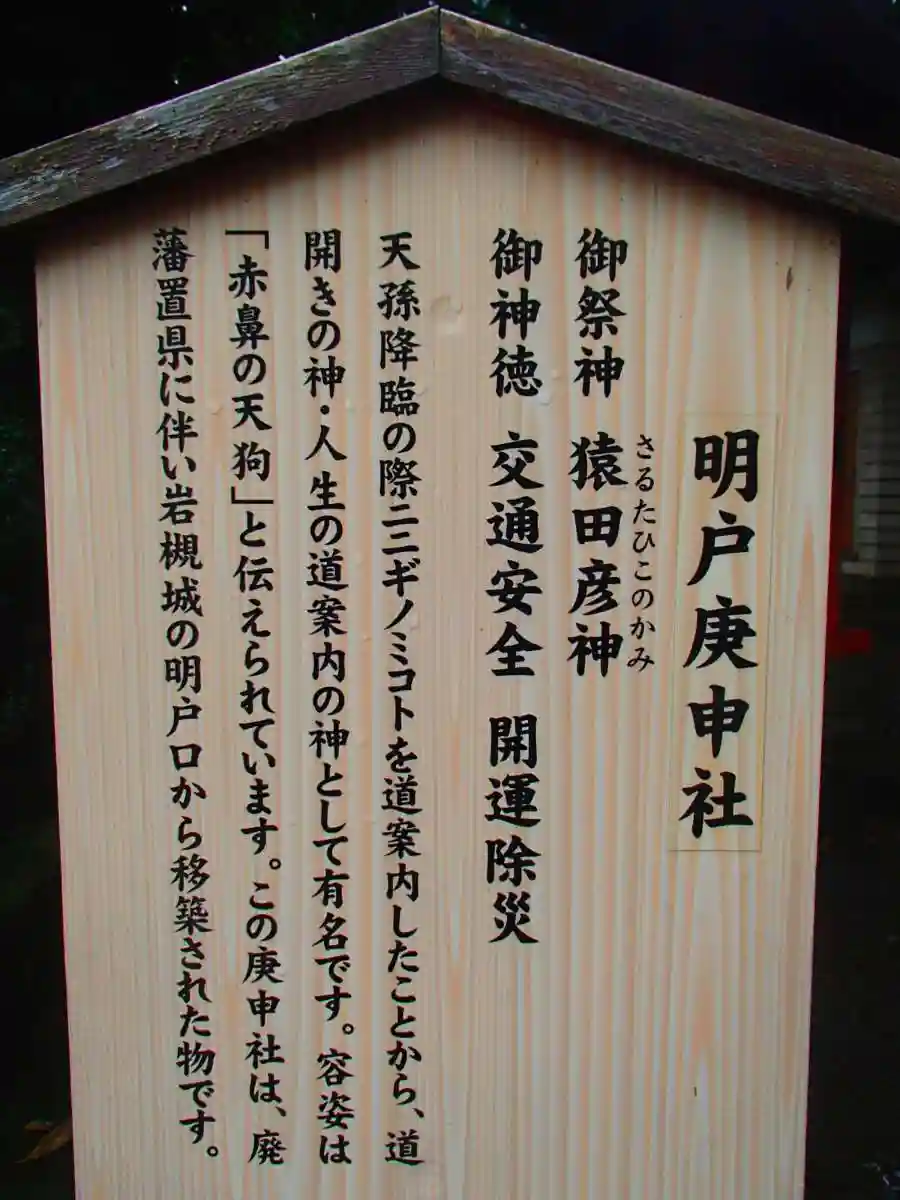 明戸庚申社
さるたひこのかみ
御祭神 猿田彦神
御神徳 交通安全 開運除災
天孫降臨の際ニニギノミコトを道案内したことから、道
開きの神・人生の道案内の神として有名です。容姿は
「赤鼻の天狗」と伝えられています。この庚申社は、廃
藩置県に伴い岩槻城の明戸口から移築された物です。